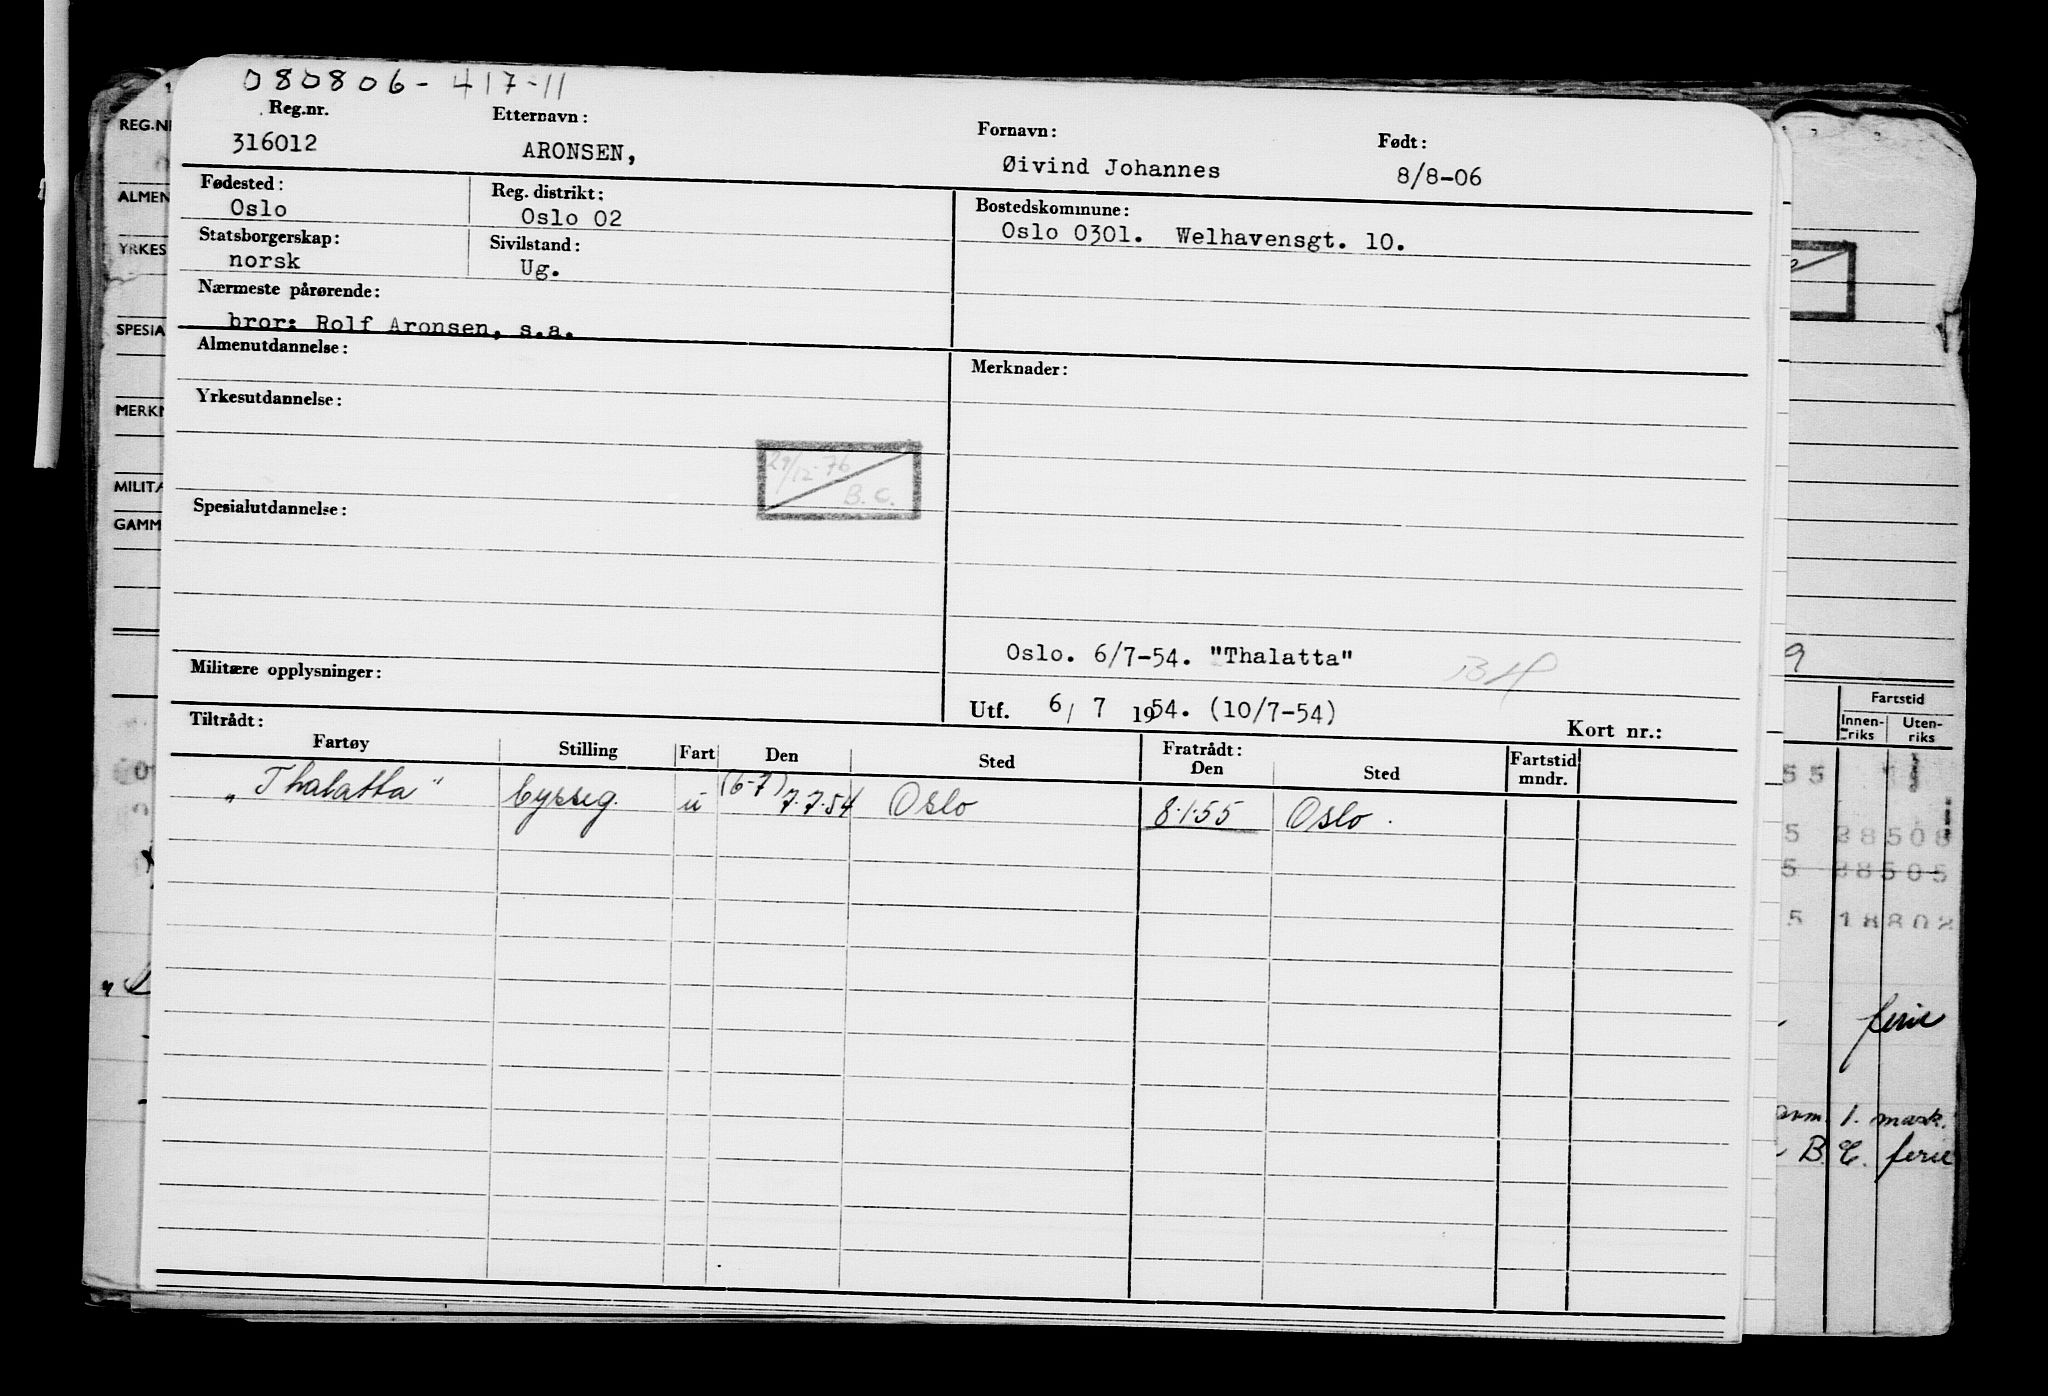 080806-417-11
Reg.nr. Etternavn: Fornavn: Født:
316012 ARONSEN, Øivind Johannes 8/8-06
Fødested: Reg. distrikt: Bostedskommune:
Oslo Oslo 02 Oslo 0301. Welhavensgt. 10.
Statsborgerskap: Sivilstand:
norsk Ug.
Nærmeste pårørende:
bror: Rolf Aronsen, s.a.
Almenutdannelse: Merknader:
Yrkesutdannelse:
29/12-76
B.C.
Spesialutdannelse:
Oslo. 6/7-54. "Thalatta"
Militære opplysninger:
Utf. 6/ 7 1954. (10/7-54) Kort nr.:
Tiltrådt: Fratrådt:
Fartøy Stilling Fart Den Sted Den Sted Fartstid mndr.
„Thalatta" byssg. u (6-7) 7.7.54 Oslo 8.1.55 Oslo.
REG.N
ALMEN
YRKES
SPESIA
MERKN
MILITA
GAMM
9
Fartstid
Innen-riks Uten-riks
55
5 38508
5 28505
5 18802
ferie
1. mask.
B. C. ferie